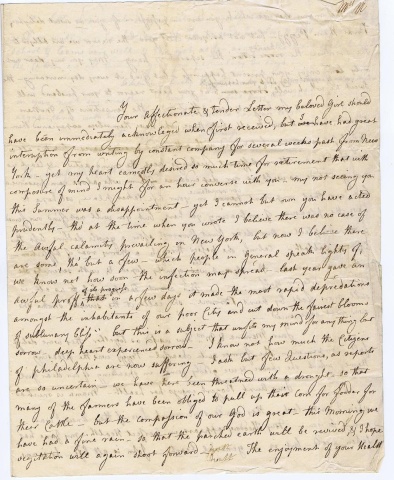 Your Affectionate & tender Letter my beloved Girl should
have been immediately acknowledged when first received, but I have had great
interruption from writing by constant company for several weeks past from New
York - yet my heart earnestly desired so much time for retirement that with
composure of mind I might for an hour converse with you - my not seeing you
this Summer was a disappointment - yet I cannot but own you have acted
prudently - tho' at the time when you wrote I believe there was no case of
the Awful calamity prevailing in New York, but now I believe there
are some, tho' but a few - which people in general speak lightly of,
we know not how soon the infection may spread - last year gave an
awful proof of its progress that in a few days it made the most rapid depredations
amongst the inhabitants of our poor City and cut down the fairest blooms
of sublunary bliss" - but this is a subject that unfits my mind for any thing but
sorrow - deep heart experienced sorrow - I know not how much the Citizens
of philadelphia are now suffering - I ask but few Questions, as reports
are so uncertain - we have here been threatned with a drought - so that
many of the farmers have been obliged to pull up their corn for fodder for
their Cattle - but the compassion of our God is great - this Morning we
have had a fine rain - so that the parched earth will be revived, & I hope
vegitation will again shoot forward - The enjoyment of your Health